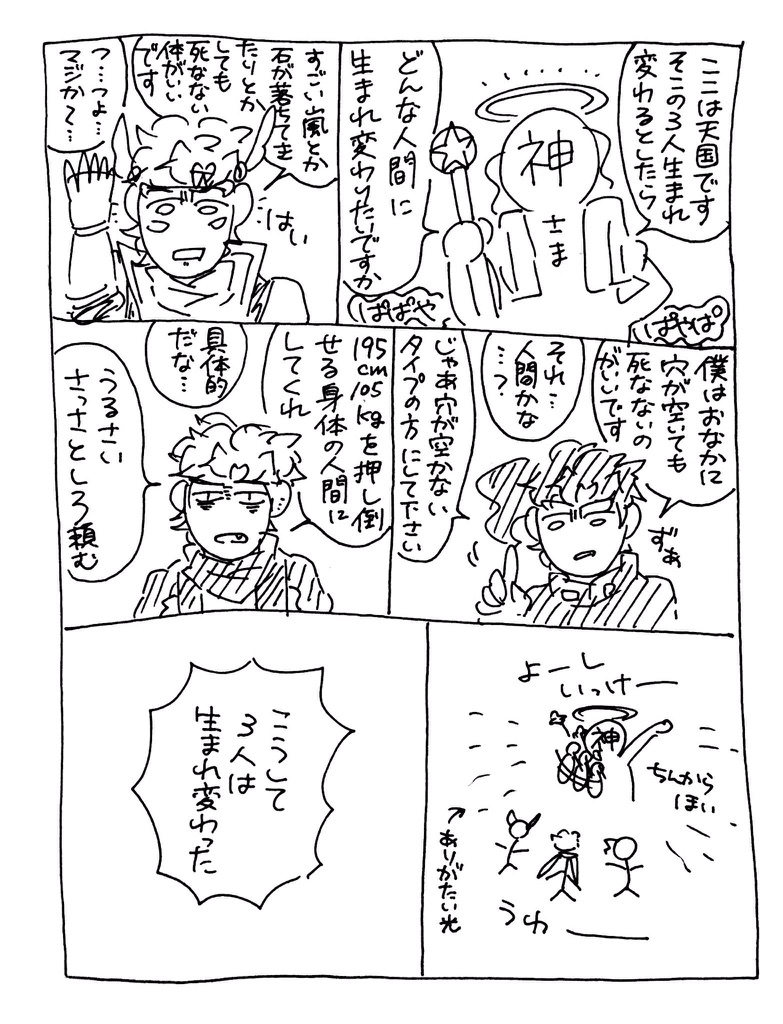 ここは天国です
そこの3人生まれ
変わるとしたら
神
さま
どんな人間に
生まれ変わりたいですか
ぱぱやや
ぱやぱ
はい
すごい嵐とか
石が落ちてき
たりとか
しても
死なない
体がいい
です
つ…つよ…
マジか〜…
僕はおなかに
穴が空いても
死なないの
がいいです
ずぁ
それ…
人間かな
…?
じゃあ穴が空かない
タイプの方にして下さい
195
cm
105
kgを押し倒
せる身体の人間に
してくれ
具体的
だな…
うるさい
さっさとしろ頼む
よーし
いっけー
神
ちんから
ほい
↑ありがたい光
うわ
こうして
3人は
生まれ変わった